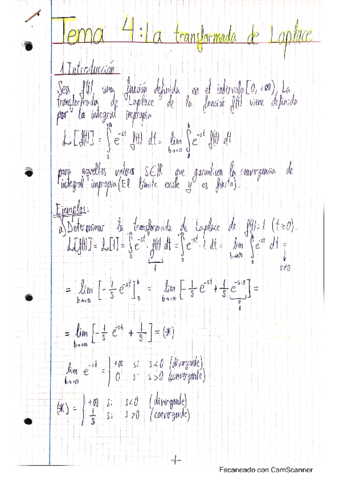 Tema 4: La transformada de Laplace
1. Introducción
Sea f(t) una función definida en el intervalo [0, +∞). La
transformada de Laplace de la función f(t) viene definida
por la integral impropia
L[f(t)] = ∫₀^{+∞} e^{-st} f(t) dt = lim_{b→∞} ∫₀^b e^{-st} f(t) dt
para aquellos valores s∈ℝ que garanticen la convergencia de
integral impropia (El límite existe y es finito).
Ejemplos:
a) Determinar la transformada de Laplace de f(t)=1 (t≥0).
L[f(t)] = L[1] = ∫₀^∞ e^{-st} · f(t) dt = ∫₀^∞ e^{-st} · 1 dt = lim_{b→∞} ∫₀^b e^{-st} dt =
1
s≠0
= lim_{b→∞} [-1/s e^{-st}]₀^b = lim_{b→∞} [-1/s e^{-sb} + 1/s e^{-s·0}] =
1
= lim_{b→∞} [-1/s e^{-sb} + 1/s] = (*)
lim_{b→∞} e^{-sb} = | +∞ si s<0 (divergente)
0 si s>0 (convergente)
(*) = | +∞ si s<0 (divergente)
1/s si s>0 (convergente)
-1-
Escaneado con CamScanner